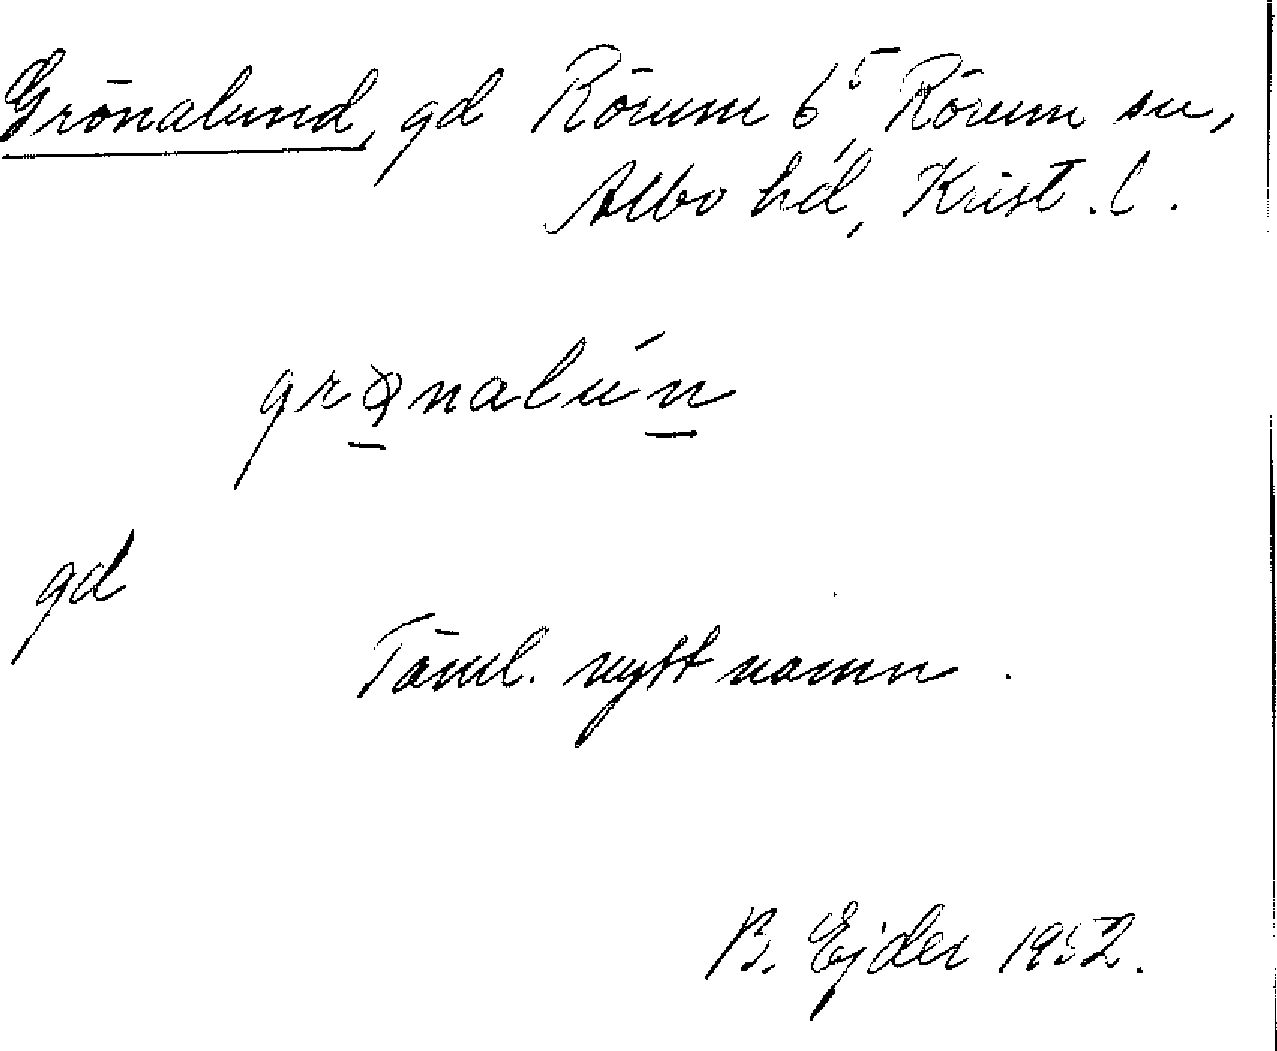 Grönalund, gd Rörum 6⁵, Rörum sn,
Albo hd, Krist. l.
grø̱nalúṉ
gd
Täml. nytt namn.
B. Ejder 1952.